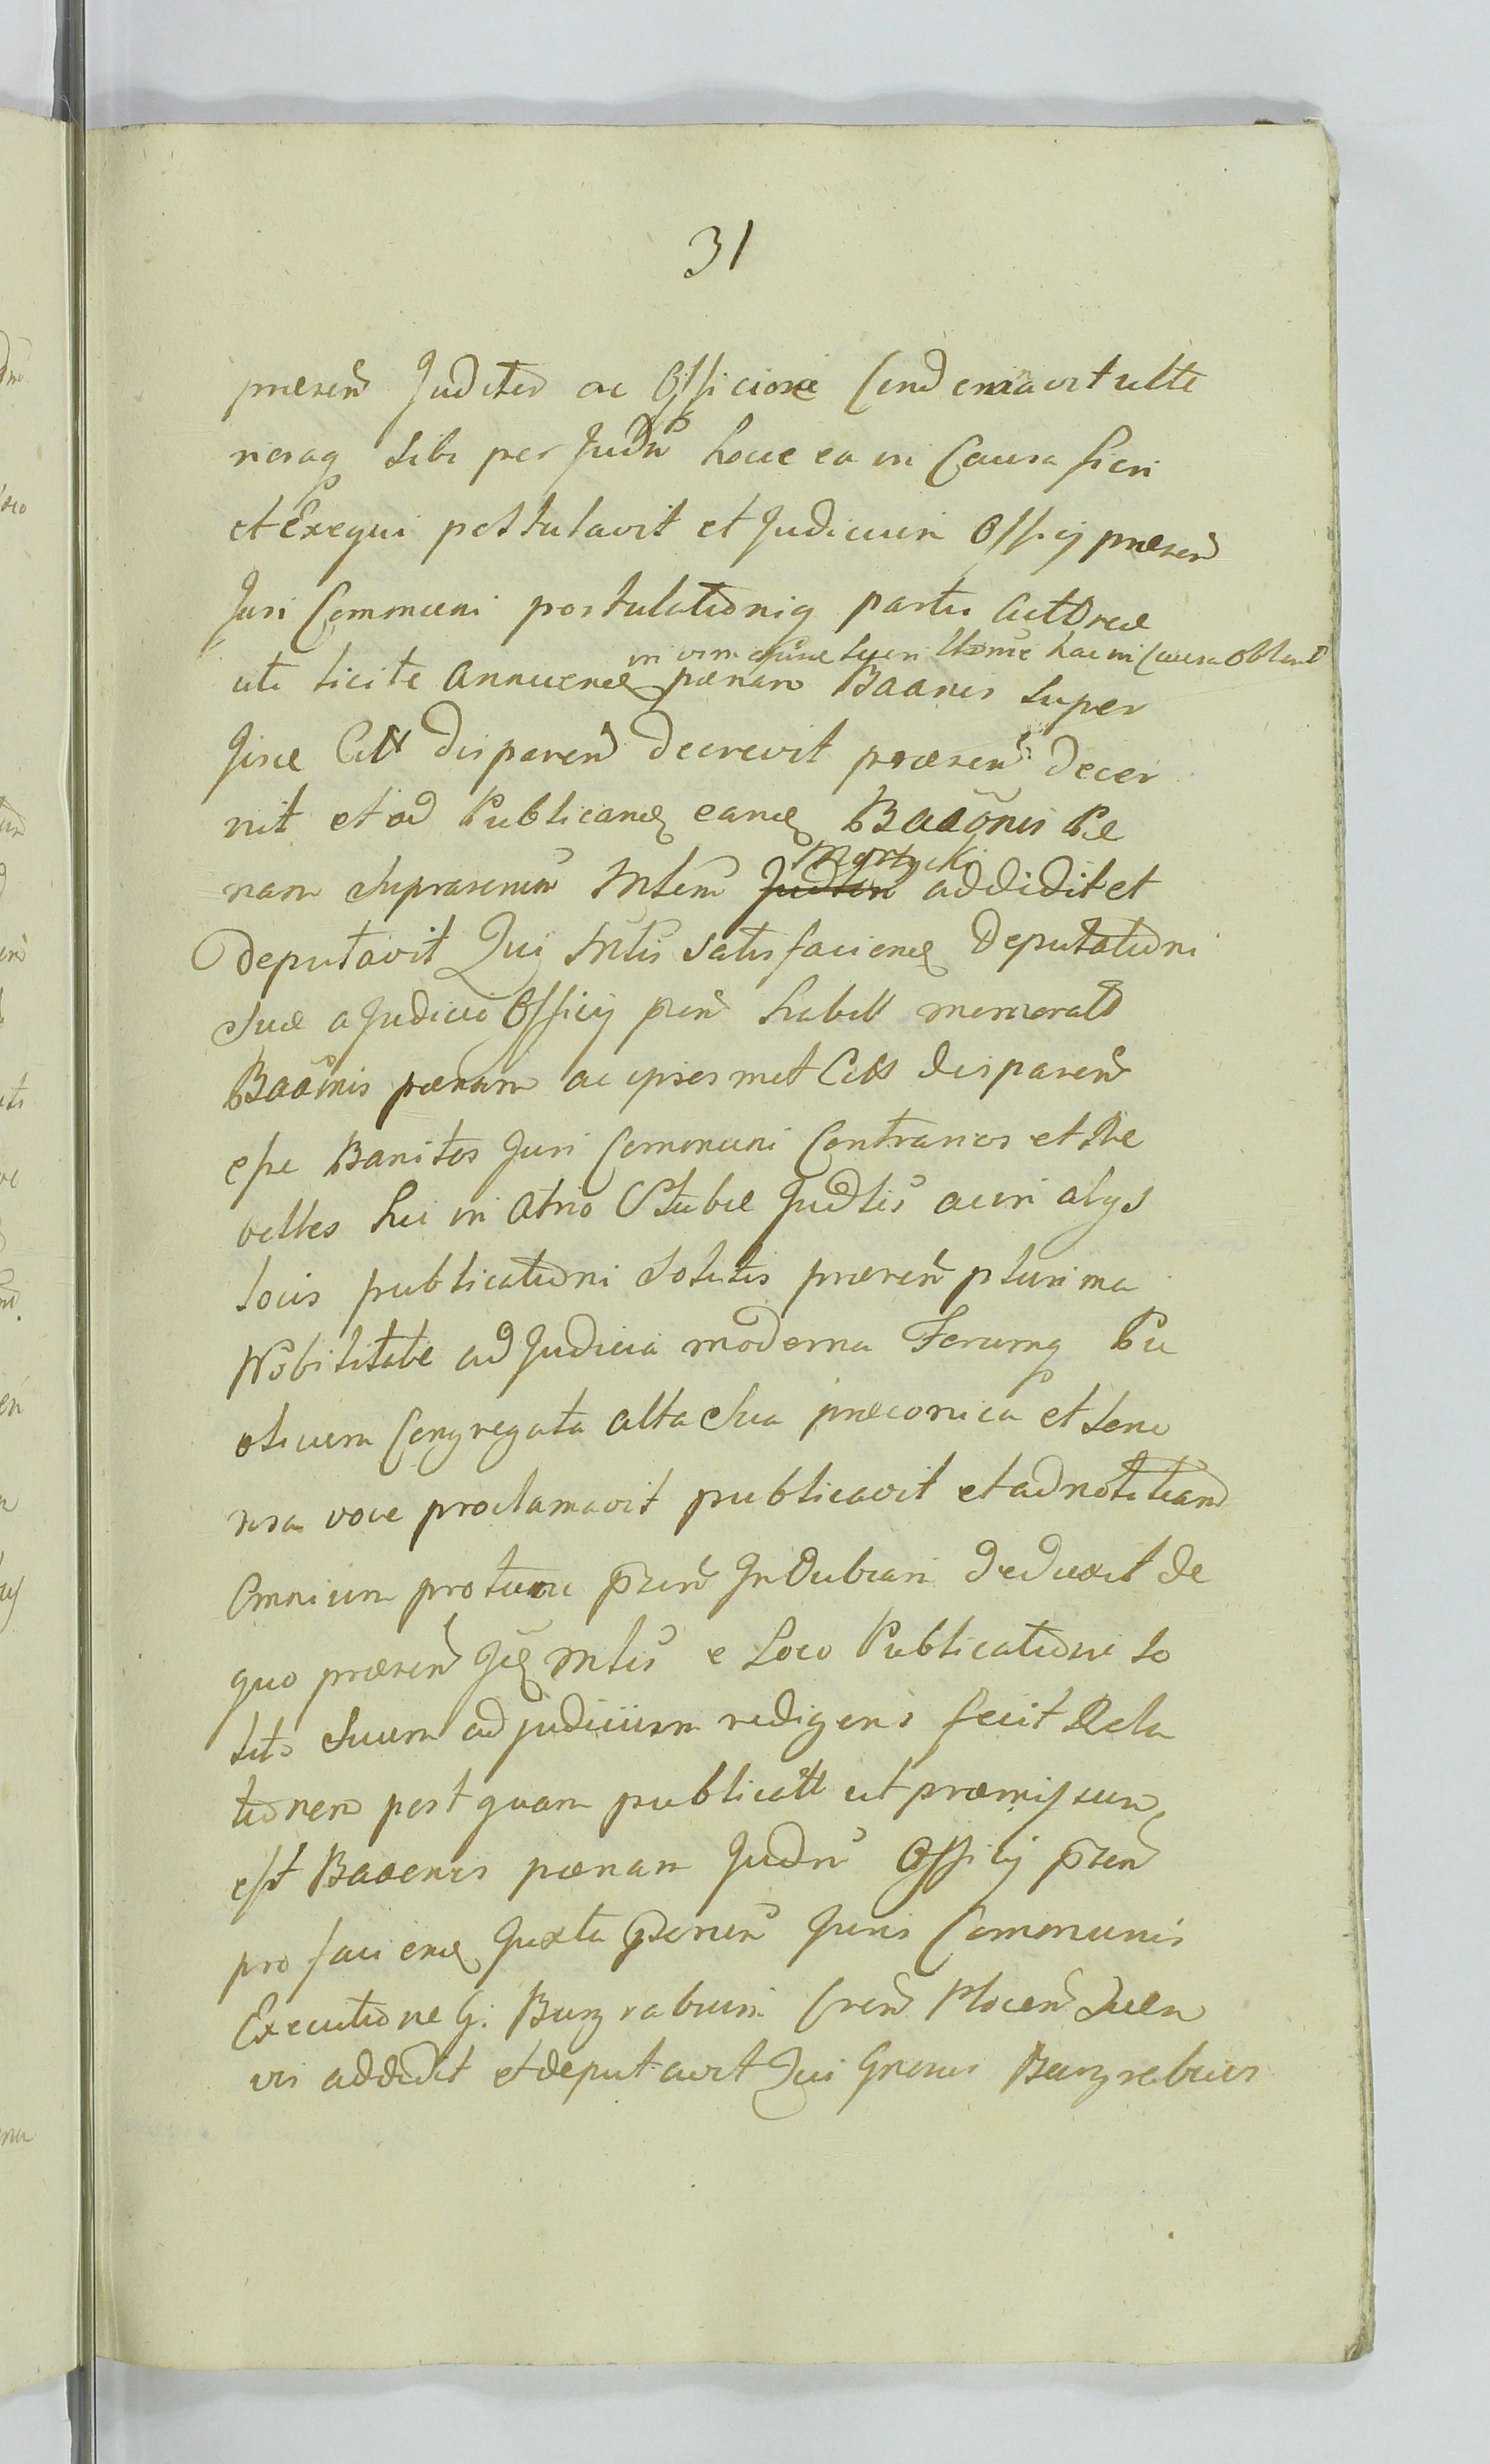 31
præsen Juditer ac Officiose Condemnavit ulte
rioraq sibi per Judm hocce ea in Causa fieri
et Exequi postulavit et Judicium Officij præsen
Juri Communi postulationiq partis Actoreæ
in vim hac in Causa Obtent
uti licite Annuend pœnam Baanis super
Cittt disparen decrevit præsen decer
nit et ad Publicand eand Baãonis Pæ
nam suprascriptum Mlem Judlem Martycki addidit et
deputavit Qui Mlis satisfaciend Deputationi
suæ a Judicio Officij præn habitt memorat
Baãnis pœnam ac ipsosmet Citts disparen
esse Banitos Juri Communi Contrarios et Re
belles hic in Atrio Stubæ Judlis ac in alys
locis publicationi solitis præsen plurima
Nobilitate ad Judicia moderna Forumq Pu
blicum Congregata alta sua præconica et sono
rosa voce proclamavit publicavit et ad notitiam
Omnium protunc præn Indubiam deduxit de
quo præsen Id Mlis e Loco Publicationi so
lito suum ad judicium redigens fecit Rela
tionem post quam publicatt ut præmissum
est Baaonis pœnam Judm Officij præn
pro faciend Juxta Juris Communis
Executione G. Burgrabium Cren Plocen Juen
vis addidit et deputavit Qui Gnosus Burgrabius